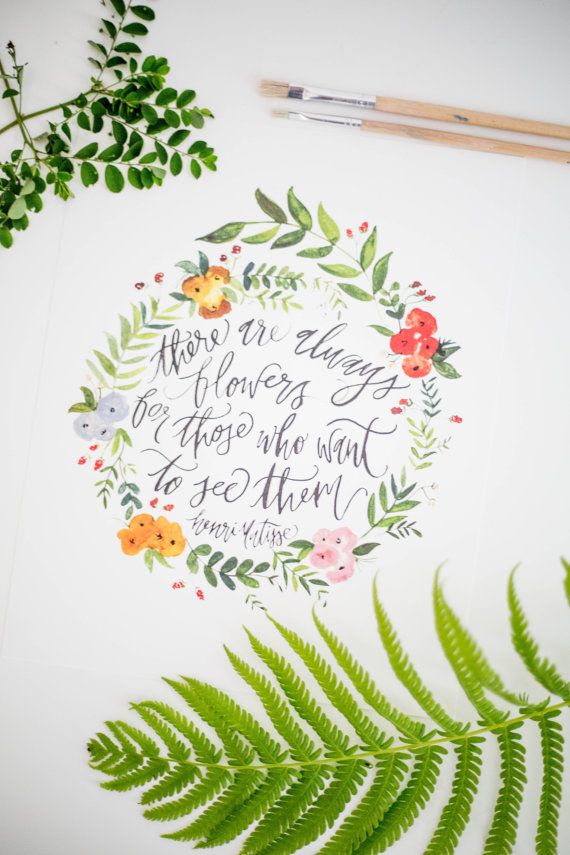 there are always
flowers
for those who want
to see them
henri matisse